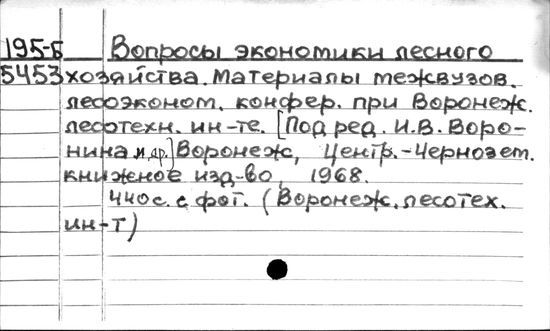 195-Б Вопросы экономики лесного
5453 хозяйства. Материалы межвузов.
лесоэконом. конфер. при Воронеж.
лесотехн. ин-те. [Под ред. И.В. Воро-
нина и др.] Воронеж, Центр.-Чернозем.
книжное изд-во, 1968.
440 с. с фот. (Воронеж. лесотех.
ин-т)